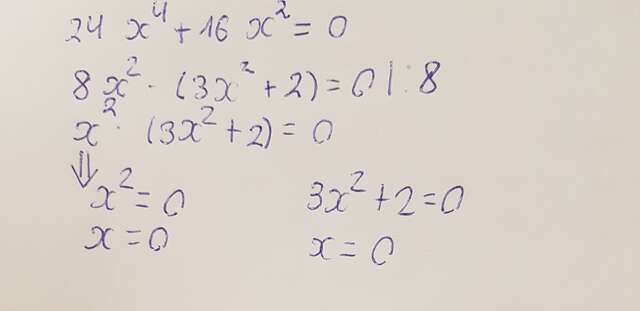 24 x⁴ + 16 x² = 0
8x² · (3x² + 2) = 0 | : 8
x² · (3x² + 2) = 0
⇓
x² = 0 3x² + 2 = 0
x = 0 x = 0